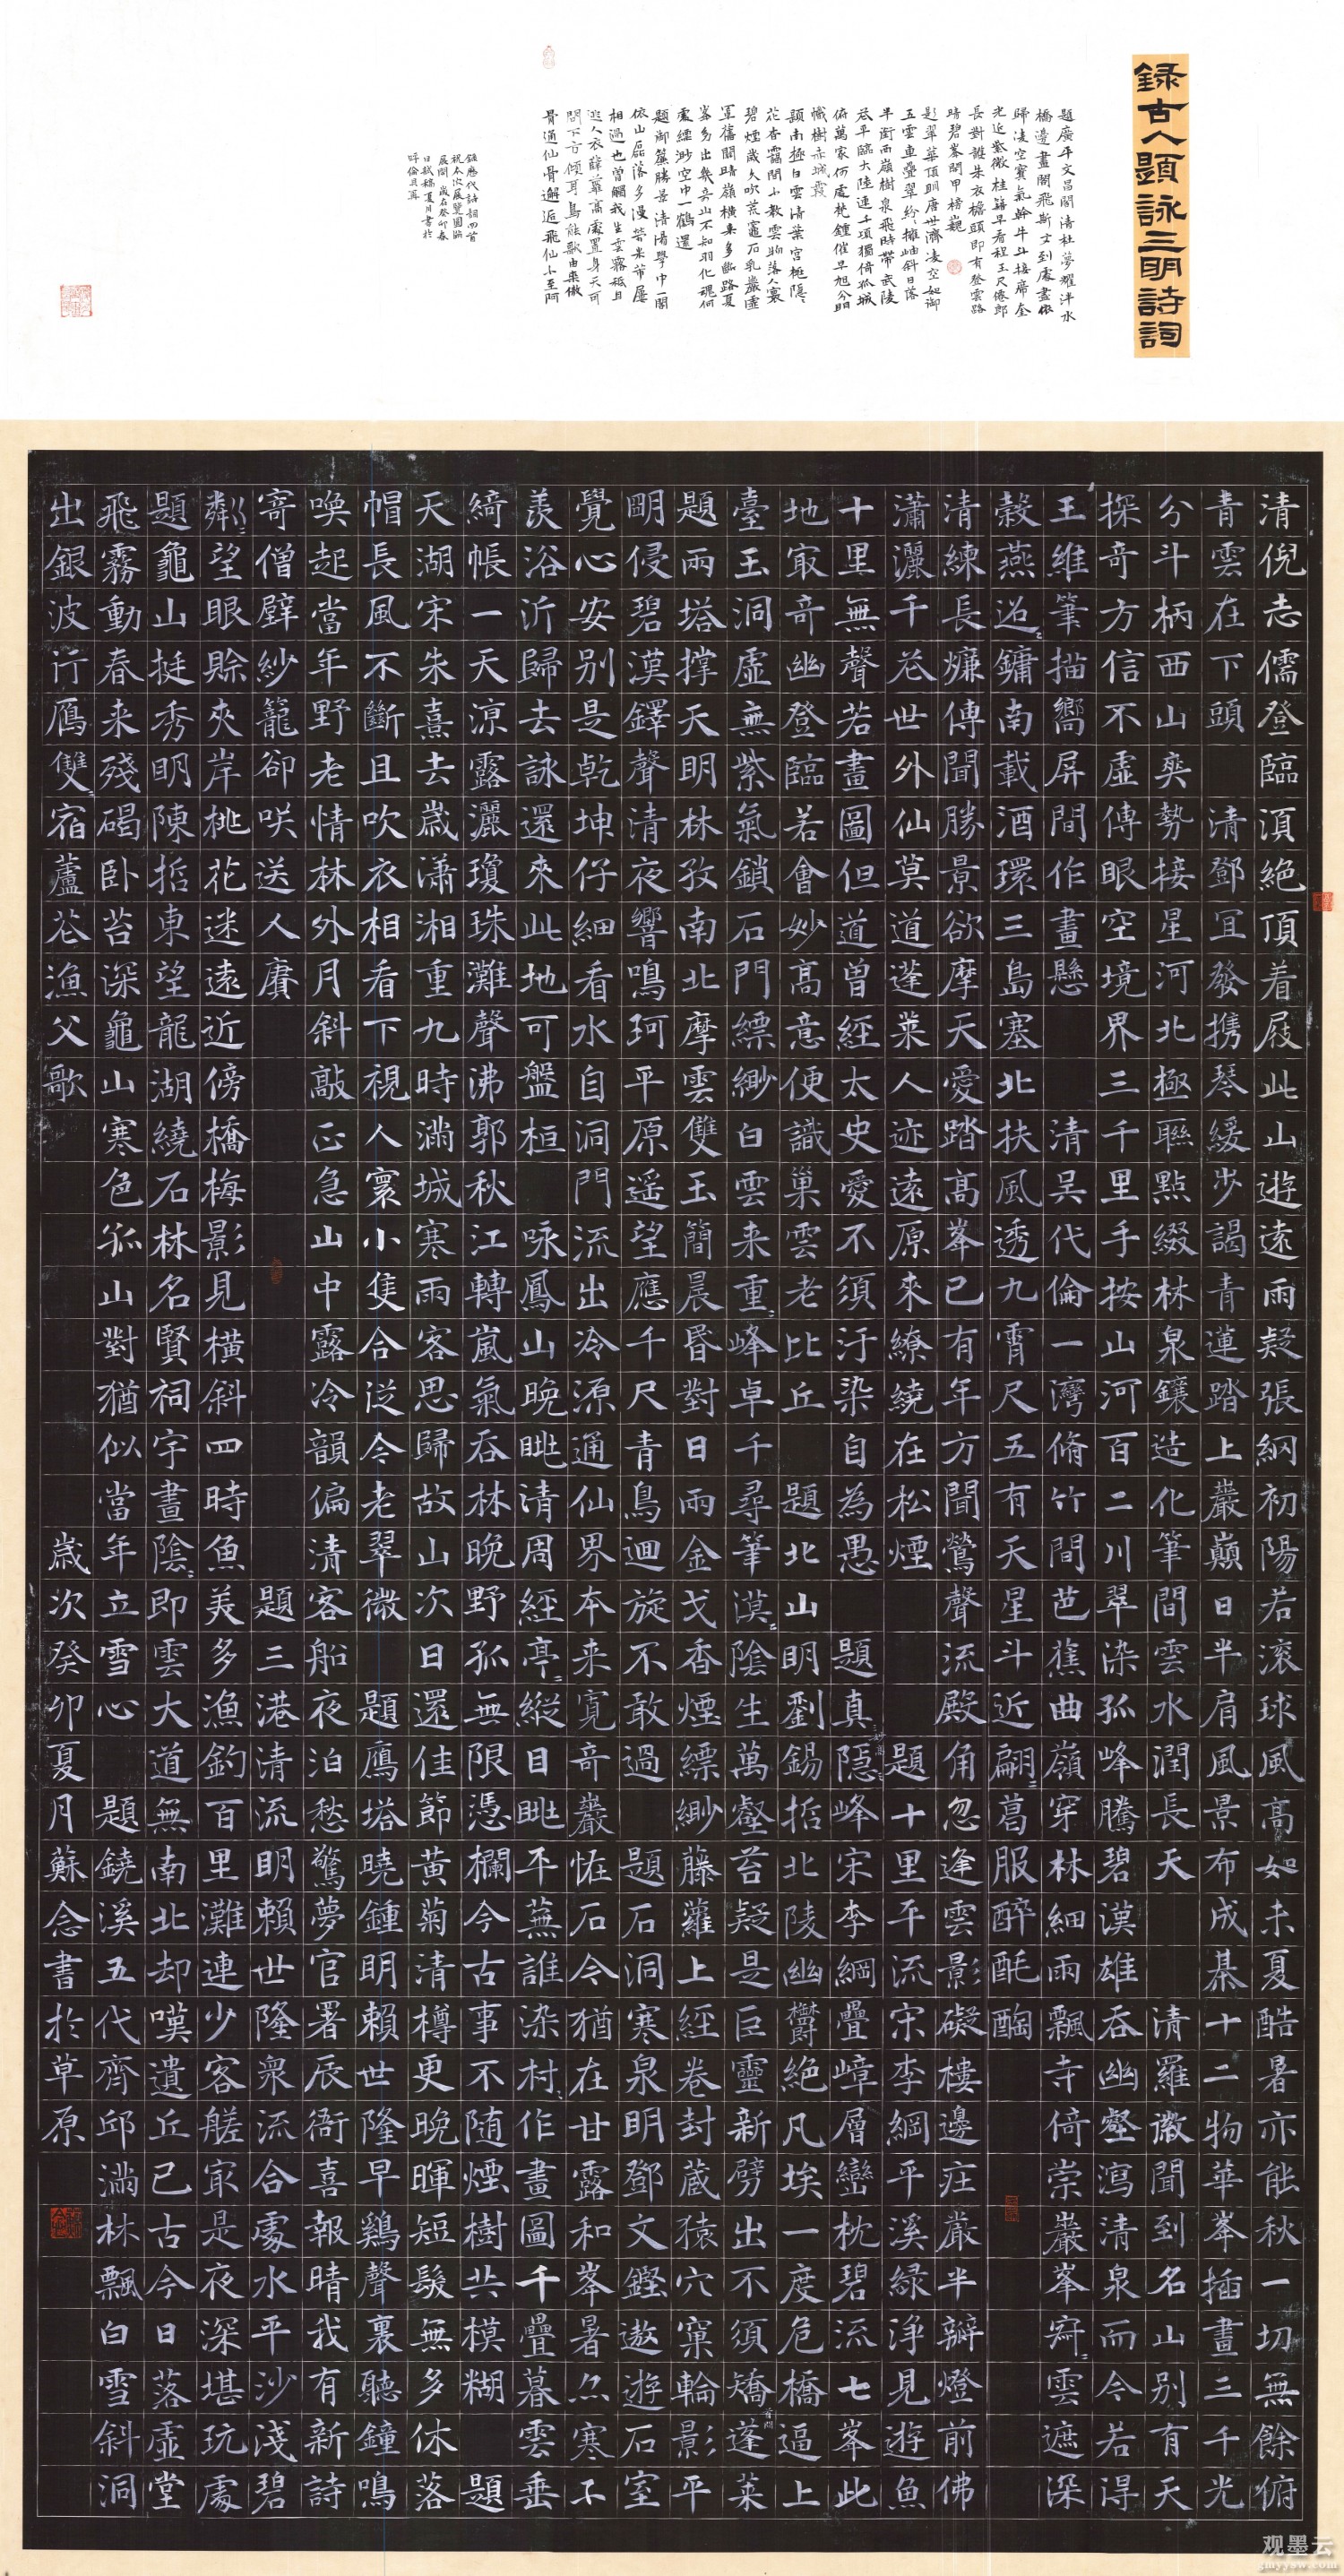 録古人題詠三明詩詞
題廣平文昌閣清杜夢耀泮水
橋邊畫閣飛斯士到處盡依
歸凌空寳氣幹牛斗接席奎
光近紫微桂籍早看程玉尺倦郎
長對謝朱衣檐頭即有登雲路
晴碧峯開甲榜巍
影翠華頂明唐世濟凌空如御
五雲車疊翠紛擁岫斜日落
半銜西嶺樹泉飛時帶武陵
花平臨大陸連千頃獨倚孤城
俯萬家何處梵鍾催早旭分明
幟樹赤城霞
題南極白雲清葉宫槐隱
花杏靄間小教雲物落人寰
碧煙歲久吹荒竈石乳巖虛
罩舊關晴嶺横来多斷路夏
峯多出幾奇山不知羽化魂何
處縹渺空中一鶴還
題御簾勝景清馮學中一閣
依山磊落多漫
相過也曾觸我生雲霧祇且
人衣薜蘿高處置身天可
問下方傾耳鳥能歌由來傲
骨通仙骨邂逅飛仙小至阿
録歷代詩詞四首
祝本次展覽圓滿
展開歲在癸卯春
日
清倪志儒登臨湏絶頂着屐此山遊遠雨疑張網初陽若滾球風高如未夏酷暑亦能秋一切無餘俯
青雲在下頭 清鄧冝發携琴緩步謁青蓮踏上巖巔日半肩風景布成棊十二物華峯插畫三千光
分斗柄西山奕勢接星河北極聯點綴林泉鑲造化筆間雲水潤長天 清羅徽聞到名山别有天
探奇方信不虛傳眼空境界三千里手按山河百二川翠染孤峰騰碧漢雄吞幽壑瀉清泉而今若得
王維筆描嚮屏間作畫懸 清吴代倫一灣脩竹間芭蕉曲嶺穿林細雨飄寺倚崇巖峯寂雲遮深
穀燕迢鏞南載酒環三島塞北扶風透九霄尺五有天星斗近翩葛服醉酕醄
清練長㷳傳聞勝景欲摩天愛踏髙峯已有年方聞鶯聲流殿角忽逢雲影礙樓邊庄嚴半瓣燈前佛
瀟灑千花世外仙莫道蓬莱人迹遠原來繚繞在松煙 題十里平流宋李綱平溪緑淨見遊魚
十里無聲若畫圖但道曾經太史愛不須汙染自為愚 題真隱峰宋李綱疊嶂層巒枕碧流七峯此
地㝡奇幽登臨若會妙高意便識巢雲老比丘 題北山明劉錫哲北陵幽欝絶凡埃一度危橋逼上
臺玉洞虛無紫氣鎖石門縹緲白雲来重峰卓千尋筆漠陰生萬壑苔疑是巨靈新劈出不須矯蓬萊
題兩塔撑天明林孜南北摩雲雙玉簡晨昏對日雨金戈香煙縹緲藤蘿上經卷封蔵猿穴窠輪影平
眀侵碧漢鐸聲清夜響鳴珂平原遥望應千尺青鳥迴旋不敢過 題石洞寒泉明鄧文鏗遨遊石室
覺心安别是乾坤仔細看水自洞門流出冷源通仙界本来寛奇巖恠石今猶在甘露和峯暑亦寒不
羨浴沂歸去詠還來此地可盤桓 咏鳳山晩眺清周經亭縱目眺平蕪誰染村作畫圖千疊暮雲垂
綺帳一天涼露灑瓊珠灘聲沸郭秋江轉嵐氣吞林晩野孤無限憑欄今古事不随煙樹共模糊 題
天湖宋朱熹去歳潇湘重九時滿城寒雨客思歸故山次日還佳節黄菊清樽更晩暉短髮無多休落
帽長風不斷且吹衣相看下視人寰小隻合從今老翠微 題鴈塔曉鍾明賴世隆早鷄聲裏聽鐘鳴
喚起當年野老情林外月斜敲正急山中露冷韻偏清客船夜泊愁驚夢官署辰衙喜報晴我有新詩
寄僧壁紗籠卻咲送人賡 題三港清流明賴世隆衆流合處水平沙淺碧
粼望眼賒夾岸桃花迷遠近傍橋梅影見横斜四時魚美多漁釣百里灘連少客艖㝡是夜深堪玩處
題龜山挺秀明陳哲東望龍湖繞石林名賢祠宇晝陰即雲大道無南北却嘆遺丘已古今日落虛堂
飛霧動春来殘碣卧苔深龜山寒色孤山對猶似當年立雪心 題鐃溪五代齊邱滿林飄白雪斜洞
出銀波行鴈雙宿蘆花漁父歌 歳次癸卯夏月蘇念書於草原
观墨云
gmyyaw.com